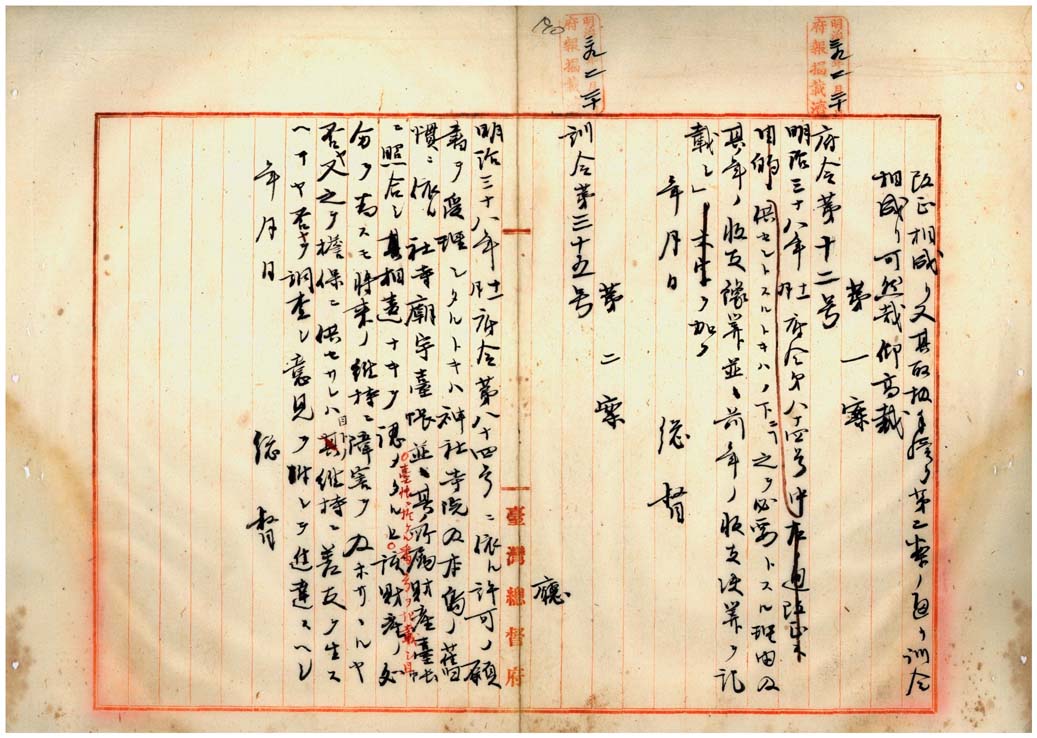 改正相成リ又其取扱手續ヲ第二案ノ通リ訓令
相成リ可然哉仰高裁
第一案
府令第十二号
明治三十八年十一月府令第八十四号中左ノ通改正ス
目的ニ供セントスルトキハノ下ニ「之ヲ必要トスル理由及
其年ノ收支豫算並ニ前年ノ收支決算ヲ記
載シ」ヲ加フ
年月日
總督
第二案
訓令第三十五号
廳
明治三十八年十一月府令第八十四号ニ依ル許可ノ願
書ヲ受理シタルトキハ神社寺院及本島ノ舊
慣ニ依ル社寺廟宇臺帳並ニ其所屬財產臺帳
ニ照合シ其相違ナキヲ認メタル上該財產ノ処
分ヲ為スモ將來ノ維持ニ障害ヲ及ホササルヤ
否又之ヲ擔保ニ供セサレハ目下ノ維持ニ差支ヲ生ス
ヘキヤ否ヲ調査シ意見ヲ附シテ進達スヘシ
年月日
總督
明治三九年一月二十日
府報揭載濟
明治三九年一月二十日
府報揭載濟
臺灣總督府